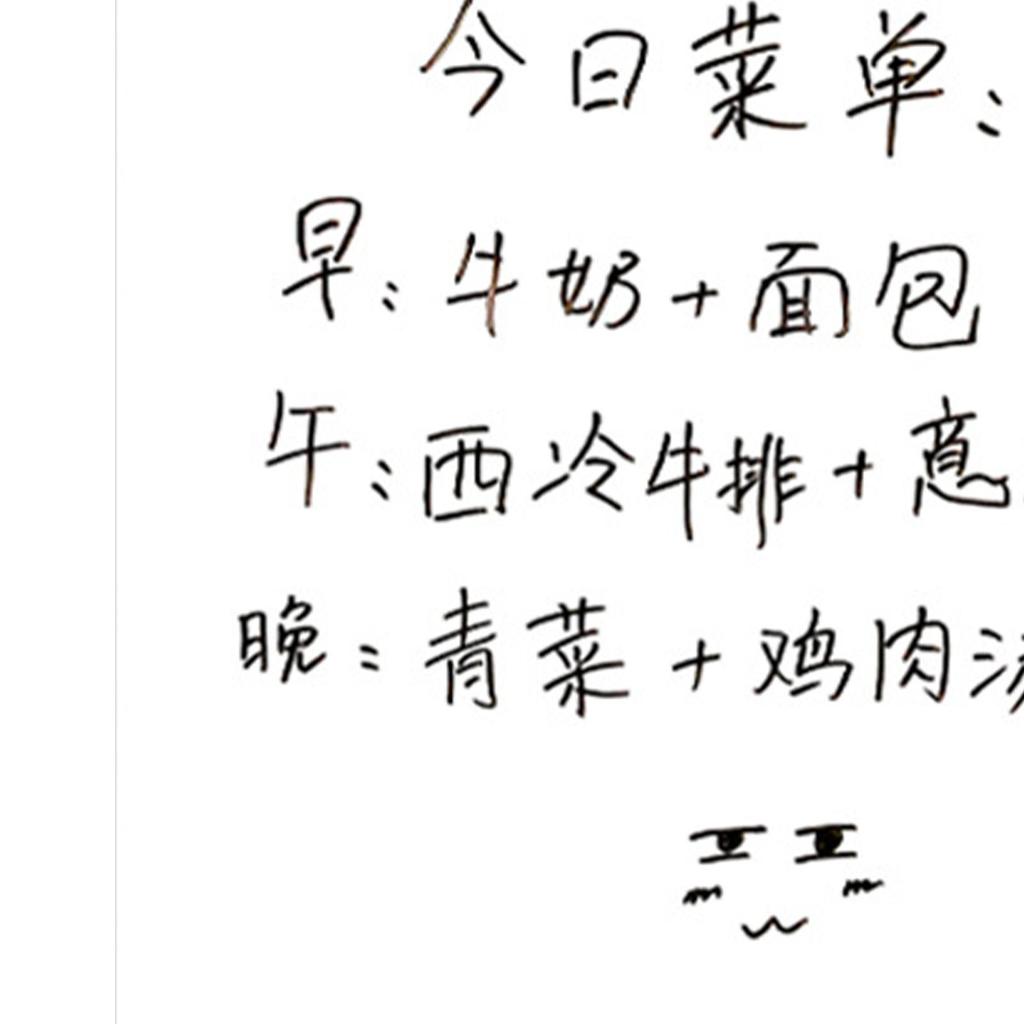 今日菜单:
早:牛奶+面包
午:西冷牛排+意
晚:青菜+鸡肉